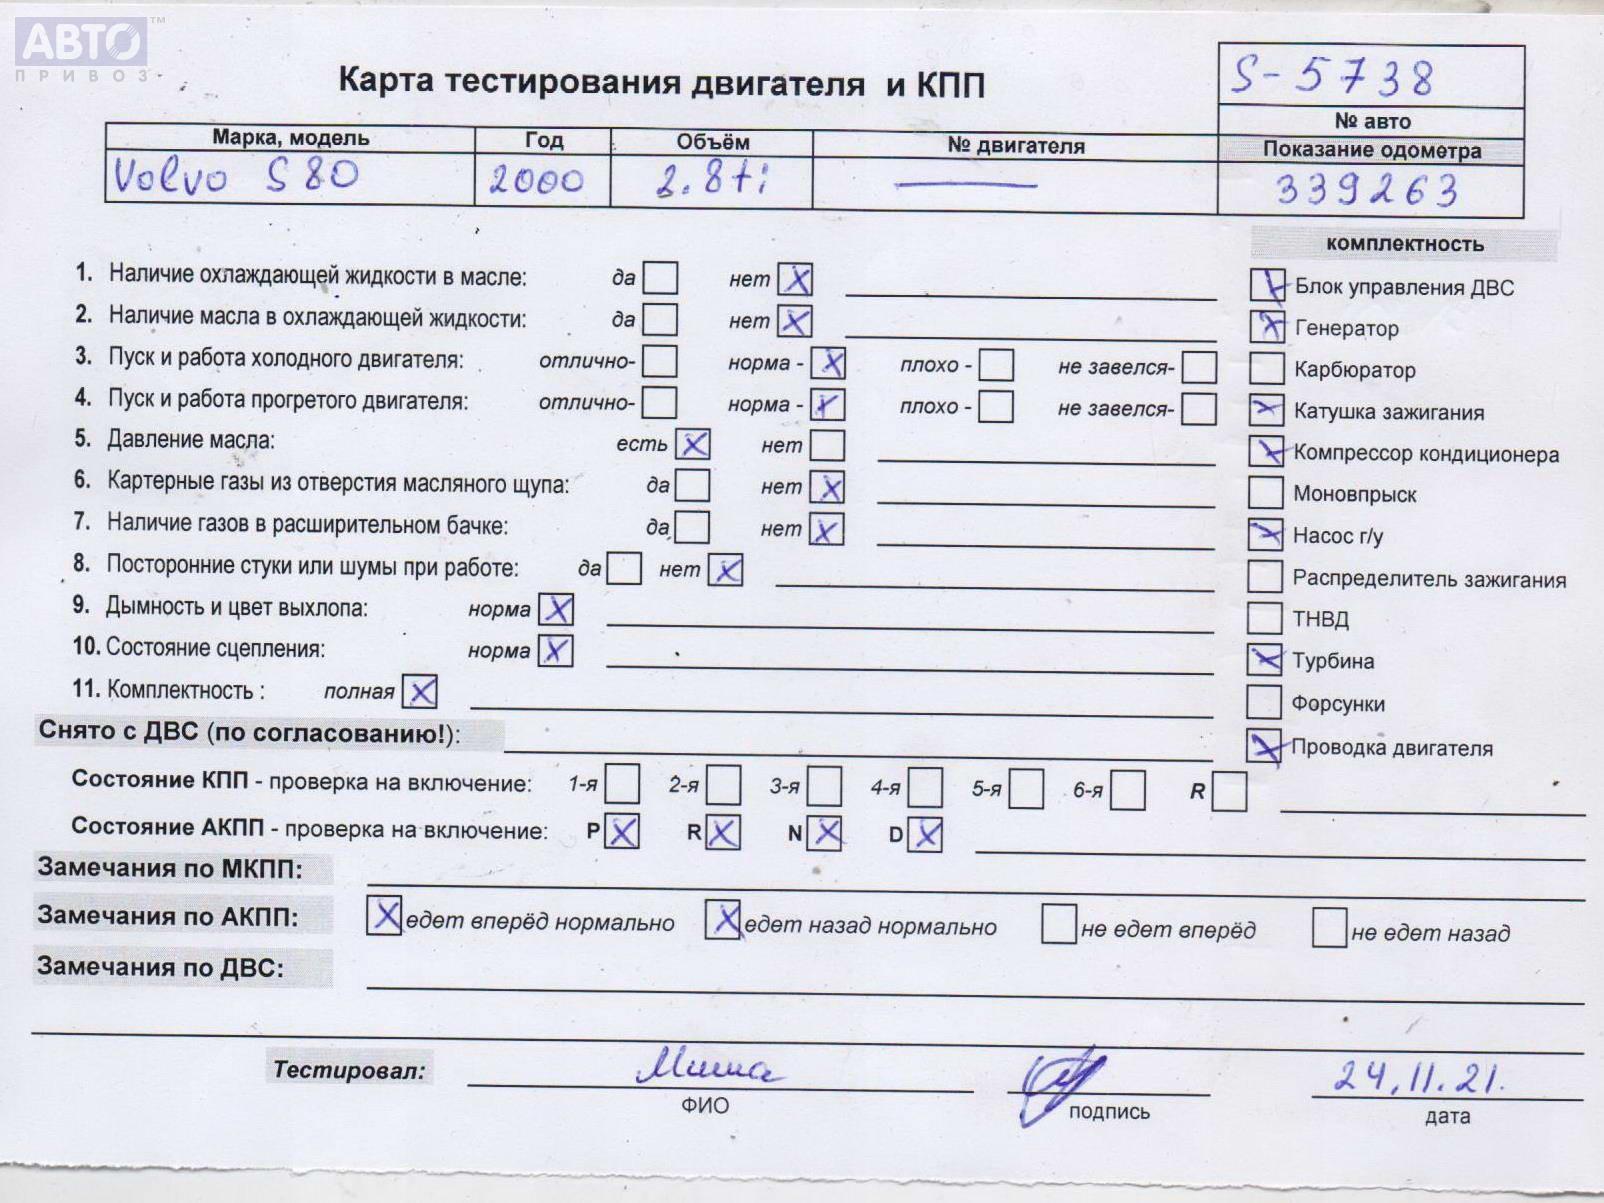 АВТО™
ПРИВОЗ
Карта тестирования двигателя и КПП
S-5738
№ авто
Марка, модель Год Объём № двигателя Показание одометра
Volvo S80 2000 2.8ti — 339263
комплектность
1. Наличие охлаждающей жидкости в масле: да нет X
2. Наличие масла в охлаждающей жидкости: да нет X
3. Пуск и работа холодного двигателя: отлично- норма - X плохо - не завелся-
4. Пуск и работа прогретого двигателя: отлично- норма - X плохо - не завелся-
5. Давление масла: есть X нет
6. Картерные газы из отверстия масляного щупа: да нет X
7. Наличие газов в расширительном бачке: да нет X
8. Посторонние стуки или шумы при работе: да нет X
9. Дымность и цвет выхлопа: норма X
10. Состояние сцепления: норма X
11. Комплектность : полная X
X Блок управления ДВС
X Генератор
Карбюратор
X Катушка зажигания
X Компрессор кондиционера
Моновпрыск
X Насос г/у
Распределитель зажигания
ТНВД
X Турбина
Форсунки
X Проводка двигателя
Снято с ДВС (по согласованию!):
Состояние КПП - проверка на включение: 1-я 2-я 3-я 4-я 5-я 6-я R
Состояние АКПП - проверка на включение: P X R X N X D X
Замечания по МКПП:
Замечания по АКПП: X едет вперёд нормально X едет назад нормально не едет вперёд не едет назад
Замечания по ДВС:
Тестировал: Миша 24.11.21.
ФИО подпись дата